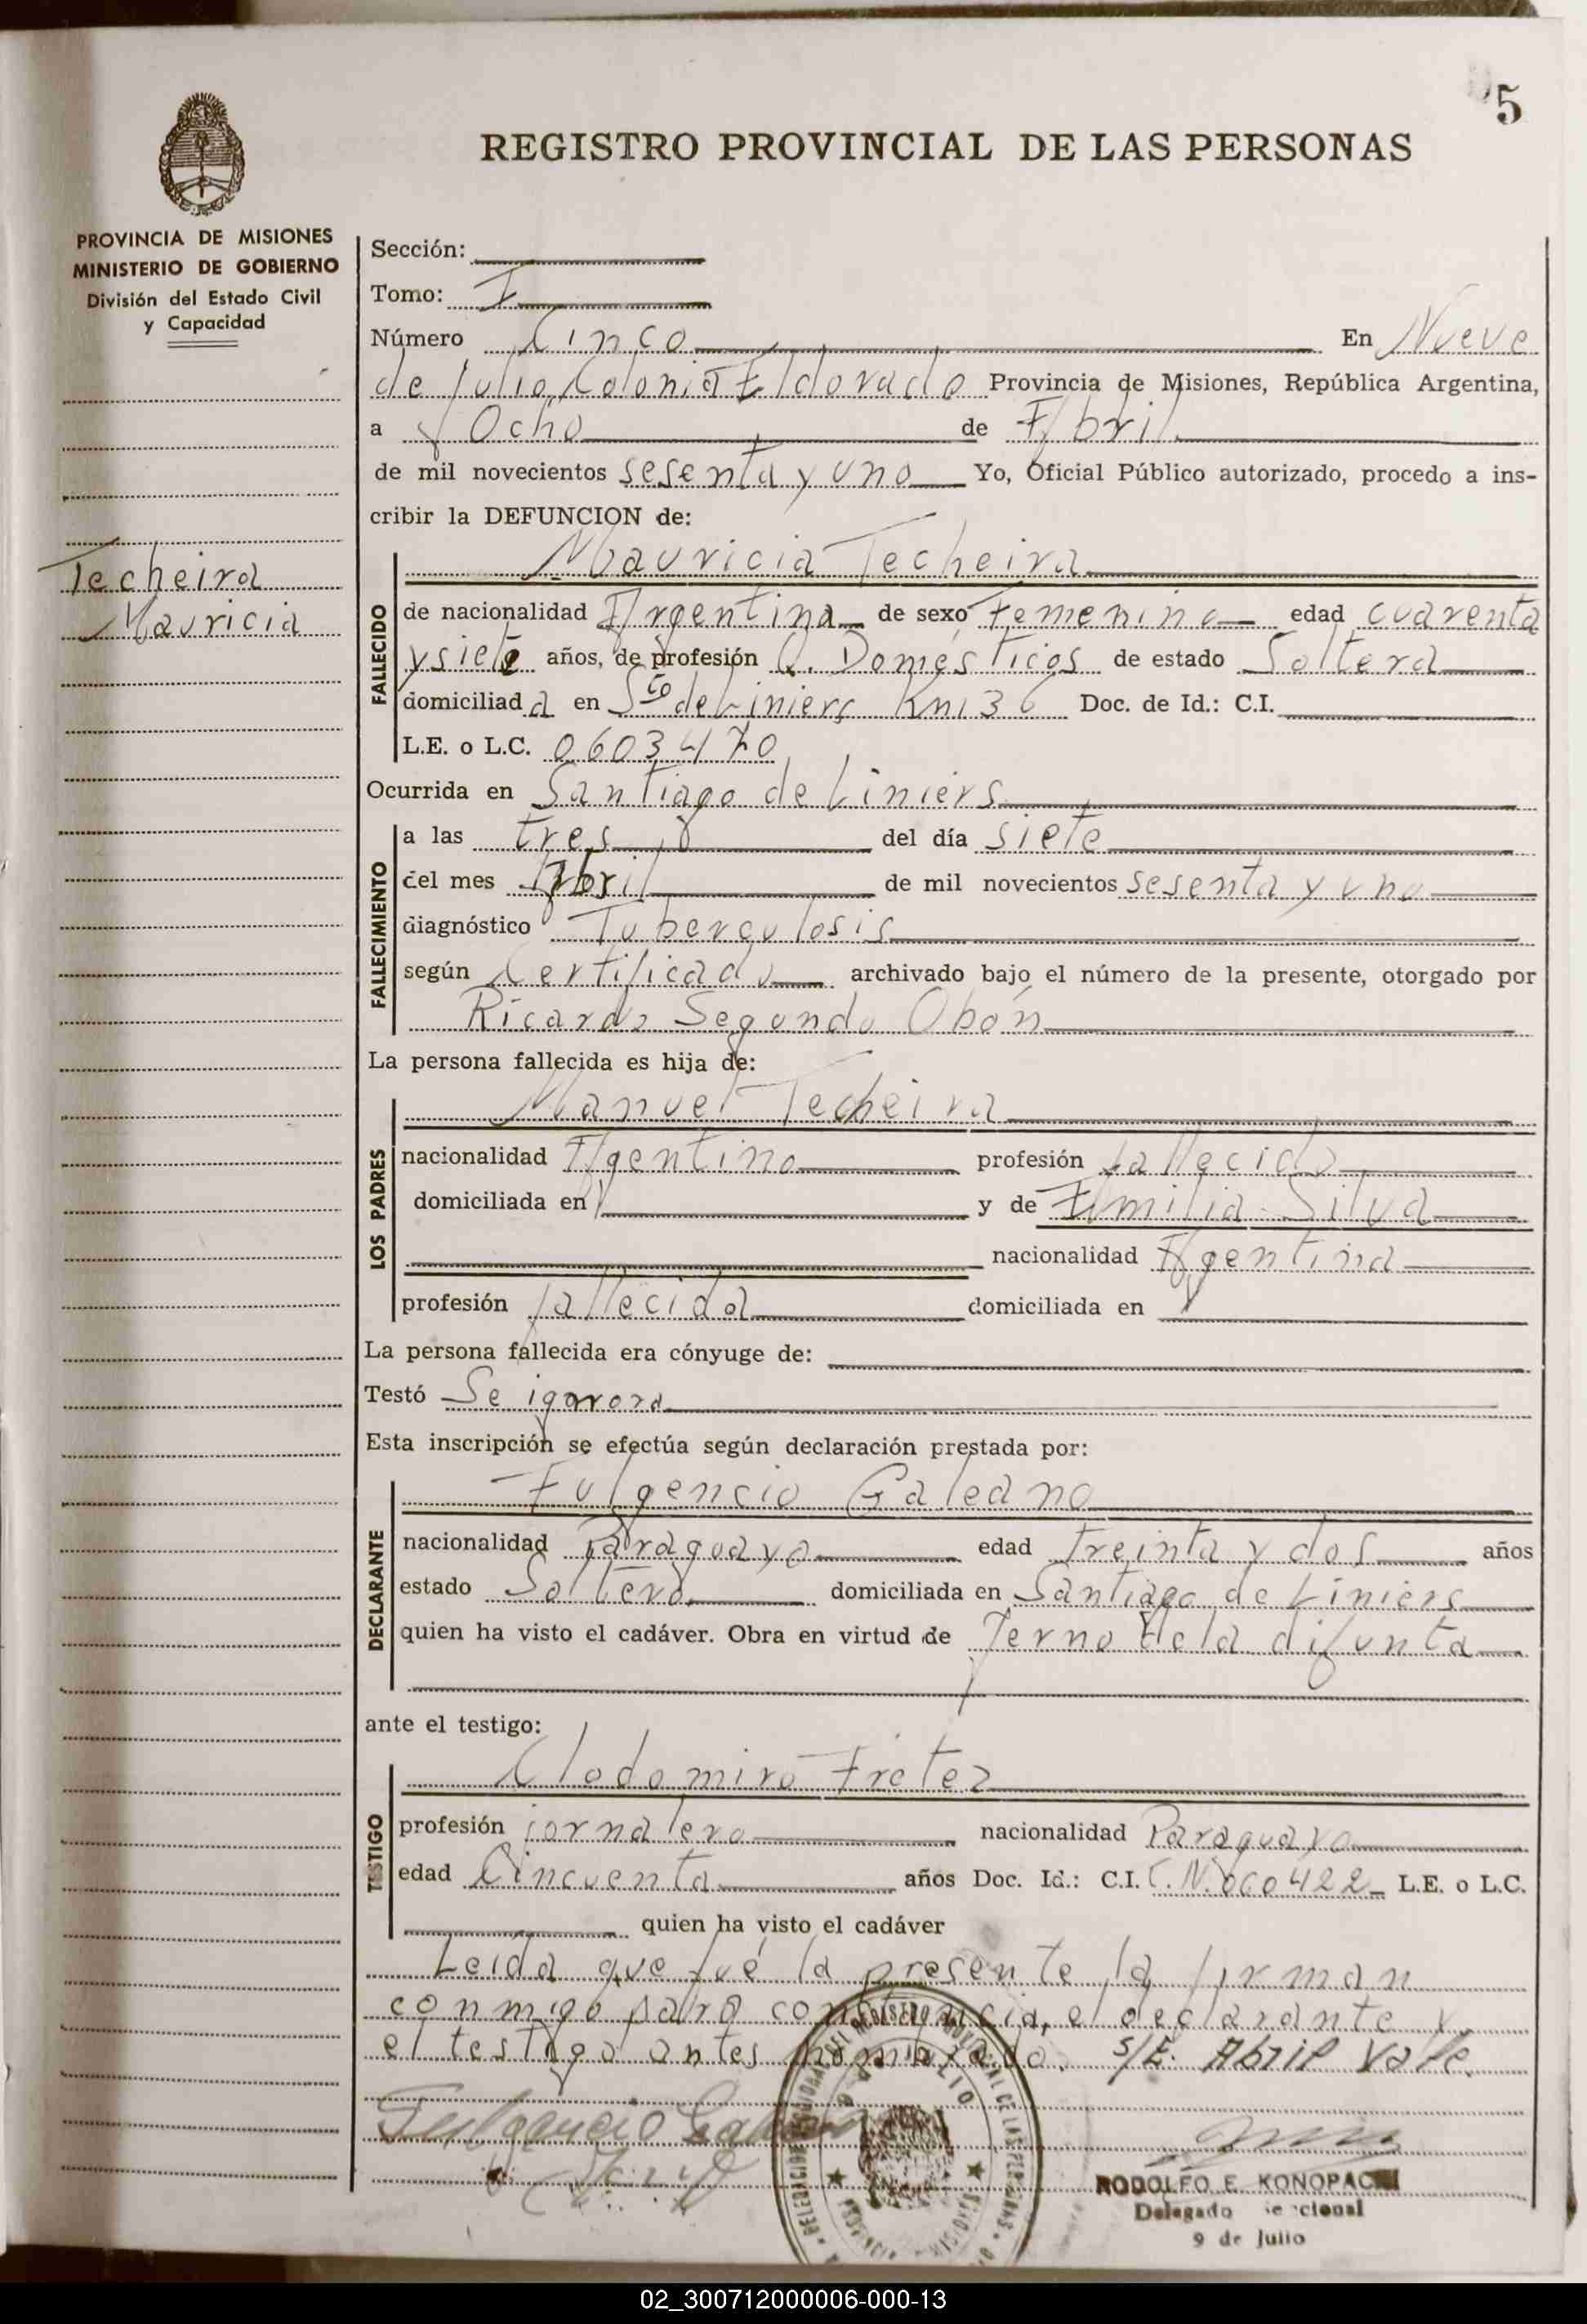 5
REGISTRO PROVINCIAL DE LAS PERSONAS
PROVINCIA DE MISIONES
MINISTERIO DE GOBIERNO
División del Estado Civil
y Capacidad
Sección:
Tomo: I
Número Cinco En Nueve
de Julio Colonia Eldorado Provincia de Misiones, República Argentina,
a Ocho de Abril
de mil novecientos sesenta y uno Yo, Oficial Público autorizado, procedo a ins-
cribir la DEFUNCION de:
Techeira
Mauricia
FALLECIDO
Mauricia Techeira
de nacionalidad Argentina de sexo Femenino edad cuarenta
y siete años, de profesión Q. Domésticos de estado Soltera
domiciliada en Sto de Liniers Km 36 Doc. de Id.: C.I.
L.E. o L.C. 0603470
Ocurrida en Santiago de Liniers
FALLECIMIENTO
a las tres del día siete
del mes Abril de mil novecientos sesenta y uno
diagnóstico Tuberculosis
según Certificado archivado bajo el número de la presente, otorgado por
Ricardo Segundo Obón
La persona fallecida es hija de:
LOS PADRES
Manuel Techeira
nacionalidad Agentino profesión fallecido
domiciliada en y de Emilia Silva
nacionalidad Agentina
profesión fallecida domiciliada en
La persona fallecida era cónyuge de:
Testó Se
Esta inscripción se efectúa según declaración prestada por:
DECLARANTE
Fulgencio Galeano
nacionalidad Paraguayo edad treinta y dos años
estado Soltero domiciliada en Santiago de Liniers
quien ha visto el cadáver. Obra en virtud de Yerno de la difunta
ante el testigo:
TESTIGO
Clodomiro Fretez
profesión jornalero nacionalidad Paraguayo
edad Cincuenta años Doc. Id.: C.I. C.N. 060422 L.E. o L.C.
quien ha visto el cadáver
Leida que fué la presente, la firman
conmigo para constancia, el declarante y
el testigo antes nombrado. S/E. Abril Vale.
Fulgencio Galeano
RODOLFO E. KONOPACKI
Delegado Seccional
9 de Julio
02_300712000006-000-13